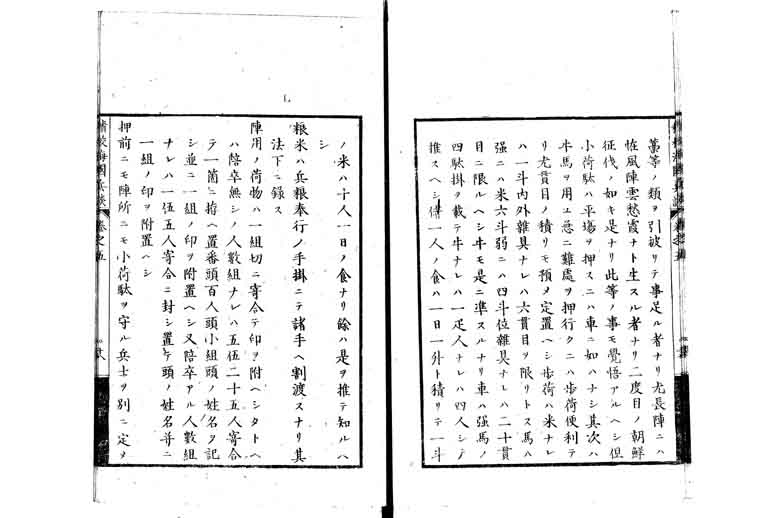 萬等ノ類ヲ引被リテ事足ル者ナリ尤長陣ニハ
怪風陣雲愁霞ナト生スル者ナリ二度目ノ朝鮮
征伐ノ如キ是ナリ此等ノ事モ覺悟アルヘシ但
小荷駄ハ平場ヲ押スニハ車ニ如ハナシ其次ハ
牛馬ヲ用ユ急ニ難處ヲ押行クニハ歩荷便利テ
リ尤貫目ノ積リモ預メ定置ヘシ歩荷ハ米ナレ
ハ一斗内外雜具ナレハ六貫目ヲ限リトス馬ハ
強ニハ米六斗弱ニハ四斗位雜具ナレハ二十貫
目ニ限ルヘシ牛モ是ニ準スルナリ車ハ強馬ノ
四駄掛ヲ載テ牛ナレハ一疋人ナレハ四人シテ
推スヘシ偖一人ノ食ハ一日一升ト積リテ一斗
ノ米ハ十人一日ノ食ナリ餘ハ是ヲ推テ知ルハ
シ
粮米ハ兵粮奉行ノ手掛ニテ諸手ヘ割渡スナリ其
法下ニ録ス
陣用ノ荷物ハ一組切ニ寄合テ印ヲ附ヘシタトヘ
ハ陪卒無シノ人數組ナレハ五伍二十五人寄合
テ一箇ニ拵ヘ置番頭百人頭小組頭ノ姓名ヲ記
シ並ニ一組ノ印ヲ附置ヘシ又陪卒アル人數組
ナレハ一伍五人寄合ニ封シ置テ頭ノ姓名并ニ
一組ノ印ヲ附置ヘシ
押前ニモ陣所ニモ小荷駄ヲ守ル兵士ヲ別ニ定メ
精校海國兵談 卷之五